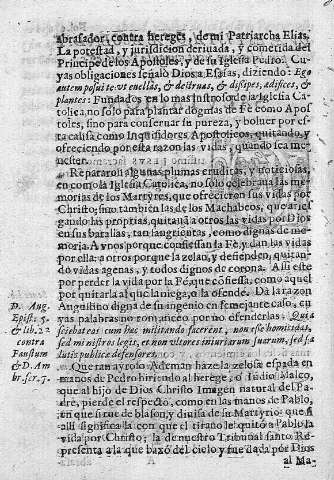 abrasador, contra hereges, de mi Patriarcha Elias.
La potestad, y jurisdicion deriuada, y cometida del
Principe de los Apostoles, y de su Iglesia Pedro. Cu-
yas obligaciones señalò Dios a Esaias, diziendo: Ego
autem posui te vt euellas, & destruas, & dissipes, adifices, &
plantes: Fundados en lo mas lustroso de la Iglesia Ca-
tolica, no solo para plantar dogmas de Fè como Apos-
toles, sino para conseruar su pureza, y boluer por es-
ta causa como Inquisidores Apostolicos, quitando, y
ofreciendo por esta razon las vidas, quando sea me-
nester.
Repararon algunas plumas eruditas, y noticiosas,
en como la Iglesia Catolica, no solo celebraua las me-
morias de los Martyres, que ofrecieron sus vidas por
Christo, sino tambien las de los Machabeos, que arries-
gando las propias, quitauã a otros las vidas por Dios
en sus batallas, tan sangrientas, como dignas de me-
moria. A vnos porque confiessan la Fè, y dan las vidas
por ella: a otros porque la zelan, y defienden, quitan-
do vidas agenas, y todos dignos de corona. Assi este
por perder la vida por la Fè, que cõfiessa, como aquel
por quitarla al que la niega, o la ofende. Da la razon
Augustino digna de su ingenio en semejante caso, cu-
yas palabras no romanço, por no ofenderlas. Quia
sciebat eos cum hæc militando facerent, non esse homicidas,
sed ministros legis, et non vltores iniuriarum suarum, sed sa-
lutis publicæ defensores.
D. Aug.
Epist. 5.
& lib. 22
contra
Faustum
& D. Am
br. ser. 7.
Que tan ayroso Ademan haze la zelosa espada en
manos de Pedro hiriendo al herege, o Iudio Malco,
que al hijo de Dios Christo Imagen natural del Pa-
dre, pierde el respecto, como en las manos de Pablo,
en que siruе de blason, y diuisa de su Martyrio: que si
alli significa la con que el tirano le quitò a Pablo la
vida por Christo; la de nuestro Tribunal santo Re-
presenta a la que baxò del cielo y fue dada por Dios
al Ma-